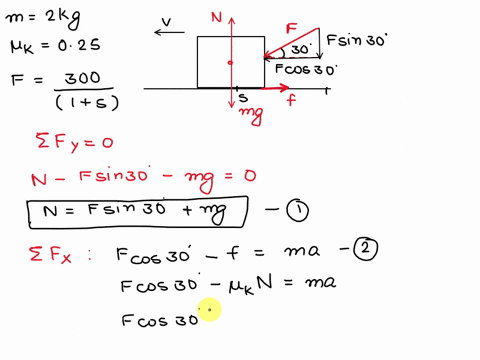 m = 2kg
μk = 0.25
F = 300/(1+s)
V
N
F
30°
Fsin30°
Fcos30°
s
f
mg
ΣFy = 0
N - Fsin30° - mg = 0
N = Fsin30° + mg - ①
ΣFx : Fcos30° - f = ma - ②
Fcos30° - μk N = ma
Fcos30°